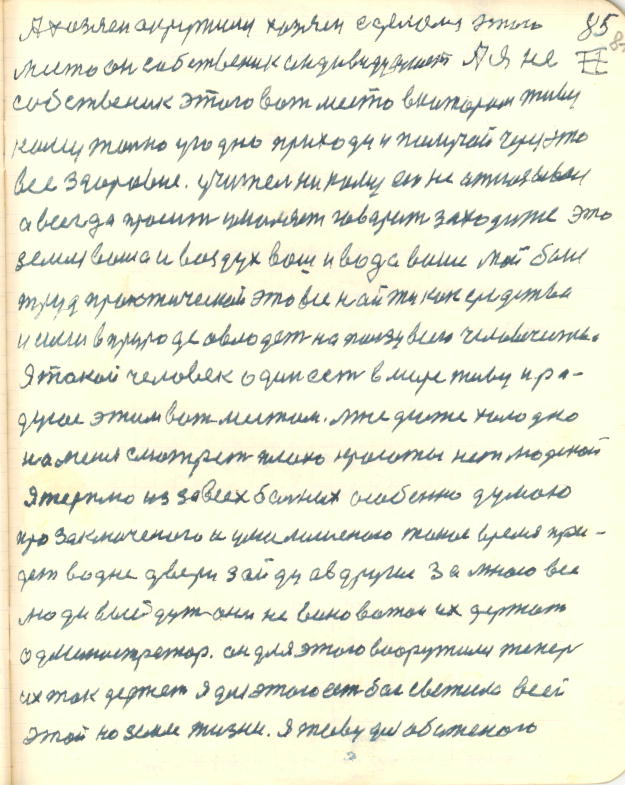 А хозяен окружили хозяен сделала этого 85
место он собственик индивидуалист А я не II
собственик этого вот место в котором живу
кому толко угодно приходи и получай через это
все здоровие. учител никому он не отказывал
а всегда просит умоляет говарит заходите это
земля ваша и воздух ваш и вода ваша мой был
труд практический это все найти как средства
и силы в природе овлодет на ползу всего человечиства.
Я такой человек один ест в мире живу и ра-
дуюс этим вот местам. мне даже холодно
на меня смотрет плохо красоты нет людской
Я терплю из за всех болних особенно думаю
про заключеного и умалишеного такое время при-
дет в одне двери зайду а в другие за мною все
люди выйдут они не виноватои их держат
одминистратор. он для этого вооружили тепер
их так держат Я для этого ест бог светила всей
этой на земле жизни. Я живу для обиженого